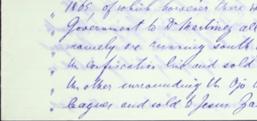 1865, of which however there
Government to Dr Martinez all
namely one running south
the Confiscation line and sold
the other surrounding the Ojo
leagues and sold to Jesus